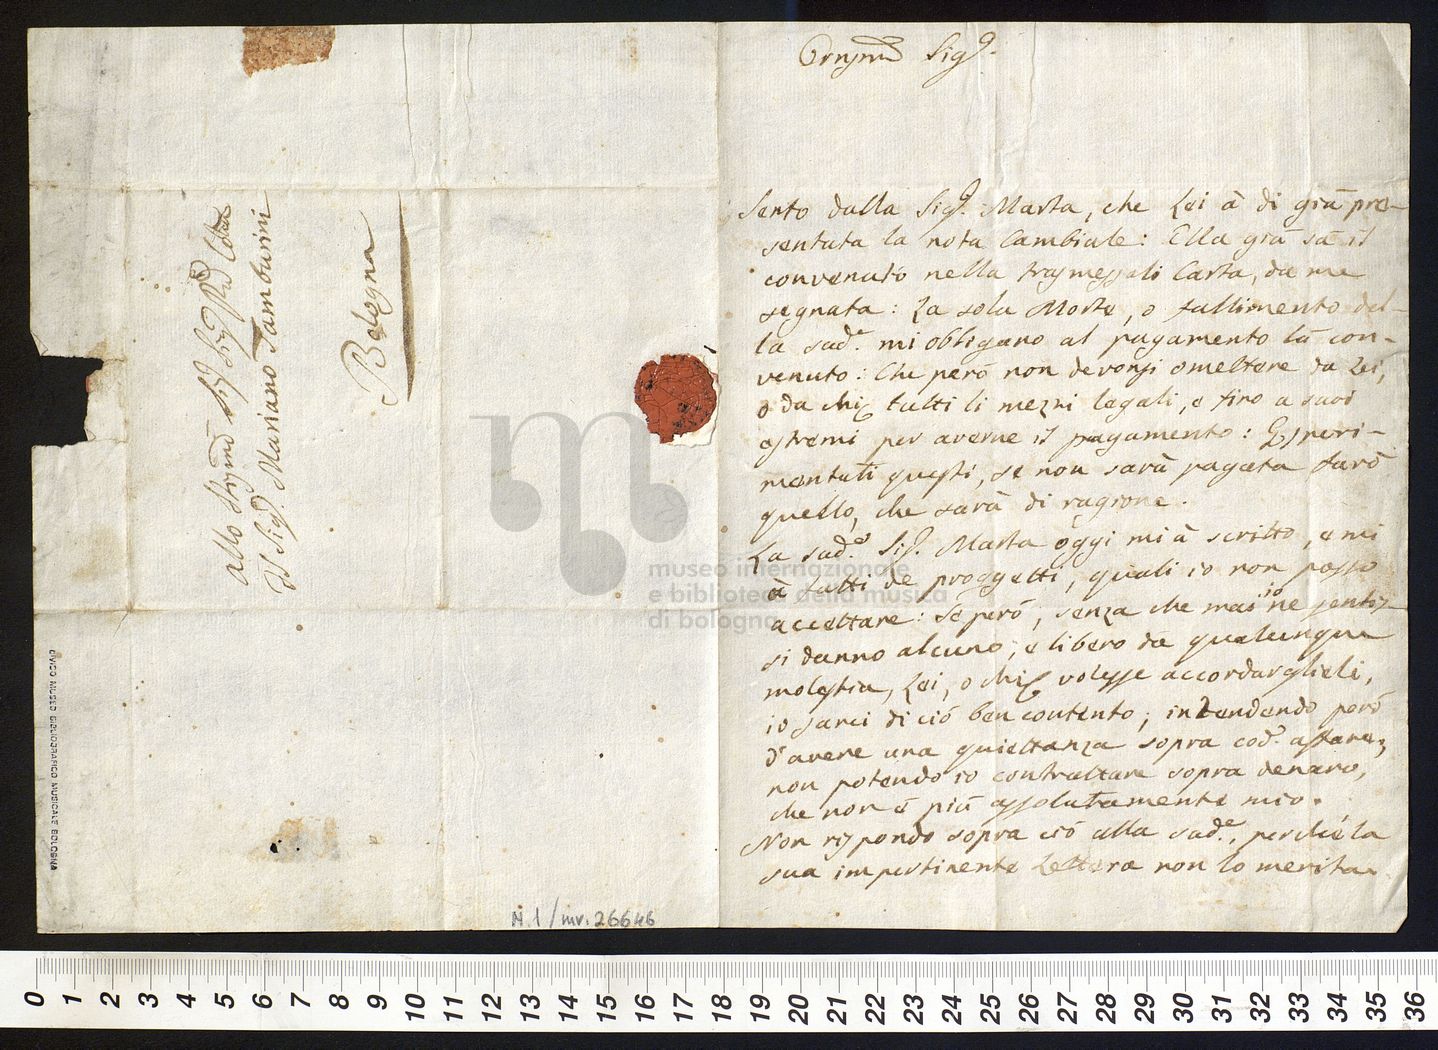 Sig.r
Sento dalla Sig.a Marta, che Lei à di già pre-
sentata la nota Cambiale: Ella già sà il
convenuto nella trasmessali Carta, da me
segnata: La sola Morte, o fallimento del-
la sad.a mi obligano al pagamento là con-
venuto: Che però non devonsi omettere da Lei,
o da chi tutti li mezni legali, e fino a suoi
estremi per averne il pagamento: Esperi-
mentati questi, se non sarà pagata farò
quello, che sarà di ragione.
La sad.a Sig.a Marta oggi mi à scritto, e mi
à fatti de proggetti, quali io non posso
accettare: Se però, senza che mai io ne senti-
si danno alcuno, e libero da qualunque
molestia, Lei, o chi volesse accordarglieli,
io sarei di ciò ben contento; intendendo però
d'avere una quiettanza sopra cod.o affare,
non potendo io contrattare sopra denaro,
che non è più assolutamente mio.
Non rispondo sopra ciò alla sad.a, perchè la
sua impertinente Lettera non lo merita.
Allo
Il Sig.r Mariano Tamburini
Bologna
CIVICO MUSEO BIBLIOGRAFICO MUSICALE BOLOGNA
N.1/mv.26646
museo internazionale
e biblioteca della musica
di bologna
0 1 2 3 4 5 6 7 8 9 10 11 12 13 14 15 16 17 18 19 20 21 22 23 24 25 26 27 28 29 30 31 32 33 34 35 36